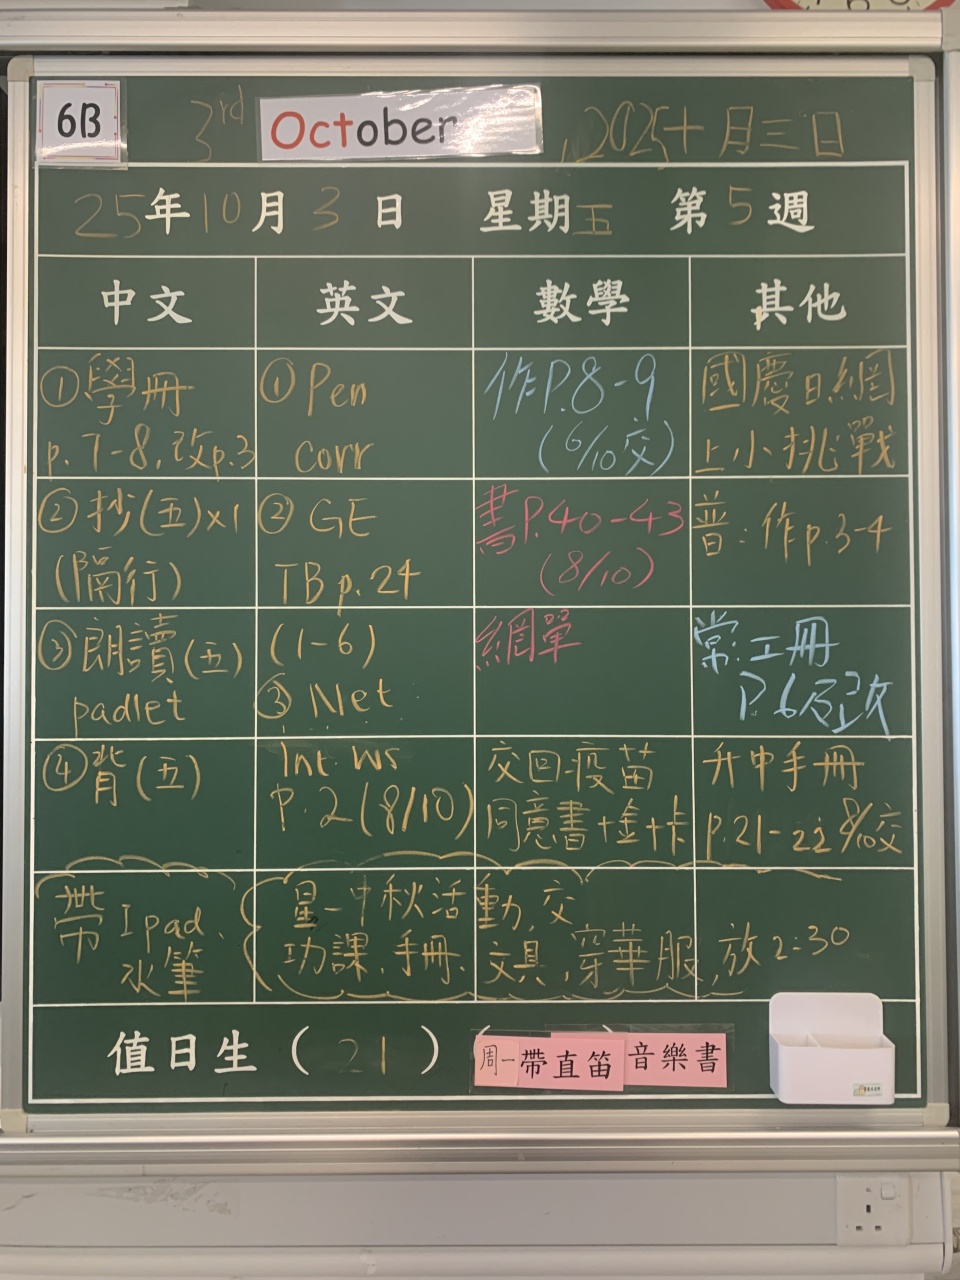 6B
3rd October, 2025 十月三日
25年10月3日 星期五 第5週
中文 英文 數學 其他
①學冊
p.7-8,改p.3
①Pen
corr
作P.8-9
(6/10交)
國慶日網
上小挑戰
②抄(五)x1
(隔行)
②GE
TB p.24
書P.40-43
(8/10)
普:作p.3-4
③朗讀(五)
padlet
(1-6)
③Net
網單
常:工冊
P.6及改
④背(五)
Int. WS
P.2(8/10)
交回疫苗
同意書+金+卡
升中手冊
p.21-22 8/10交
帶 Ipad、
水筆
星一中秋活動,交
功課,手冊、文具,穿華服,放2:30
值日生(21)
周一帶直笛 音樂書